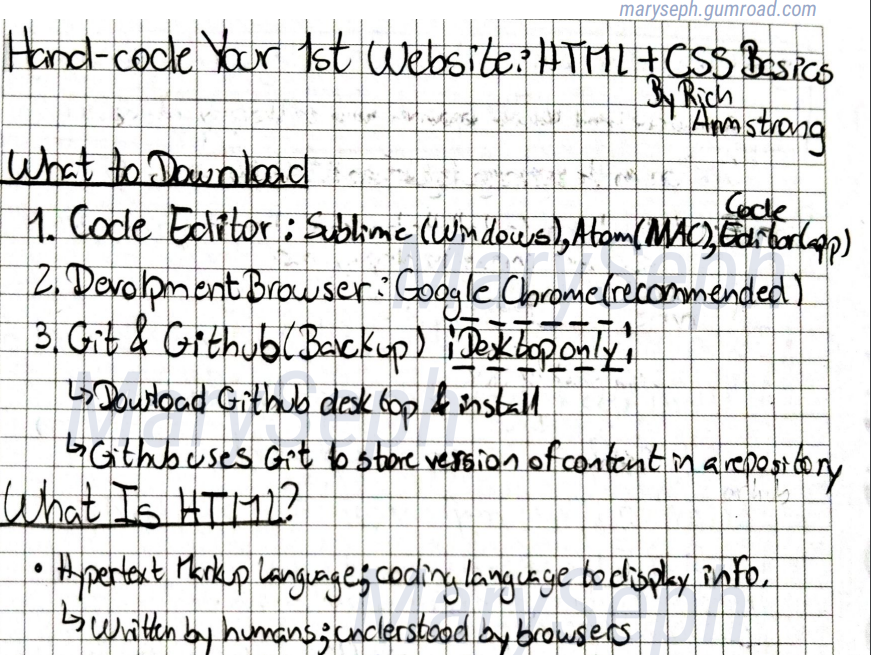 maryseph.gumroad.com
Hand-code Your 1st Website: HTML + CSS Basics
By Rich
Armstrong
What to Download
1. Code Editor: Sublime (Windows), Atom (MAC), Code Editor (app)
2. Devolpment Browser: Google Chrome (recommended)
3. Git & Github (Backup) Desktop only
↳ Dowload Github desktop & install
↳ Github uses Git to store version of content in a repository
What Is HTML?
• Hypertext Markup Language; coding language to display info.
↳ Written by humans; understood by browsers
MarySeph
MarySeph
MarySeph